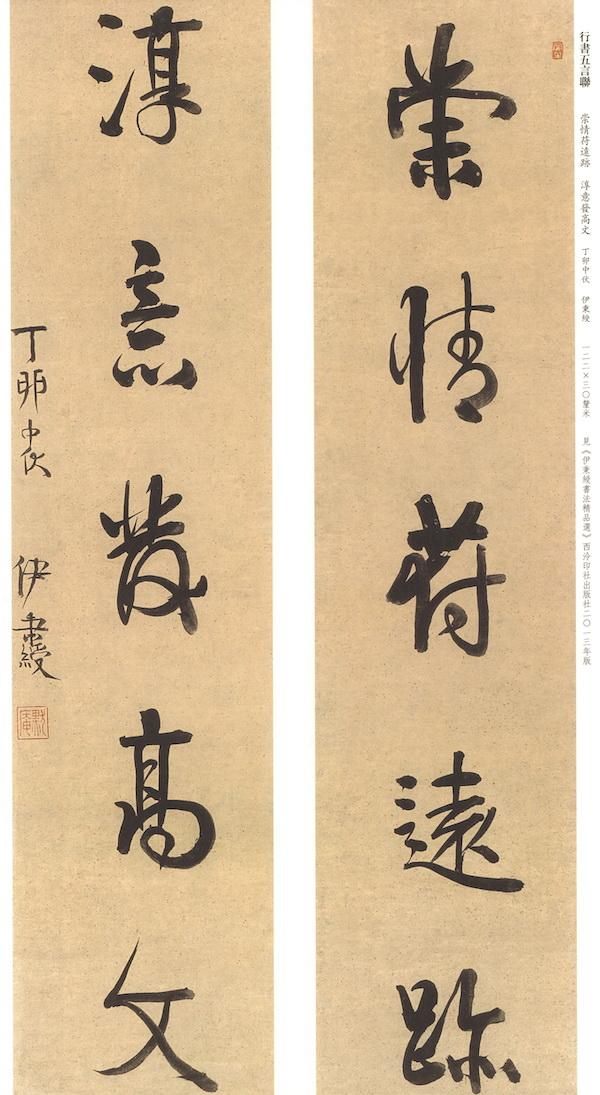 行書五言聯 崇情苻遠跡 淳意發高文 丁卯中伏 伊秉綬 一二二×三〇釐米 見《伊秉綬書法精品選》西泠印社出版社二〇一三年版
崇情苻遠跡
淳意發高文
丁卯中伏 伊秉綬
默庵